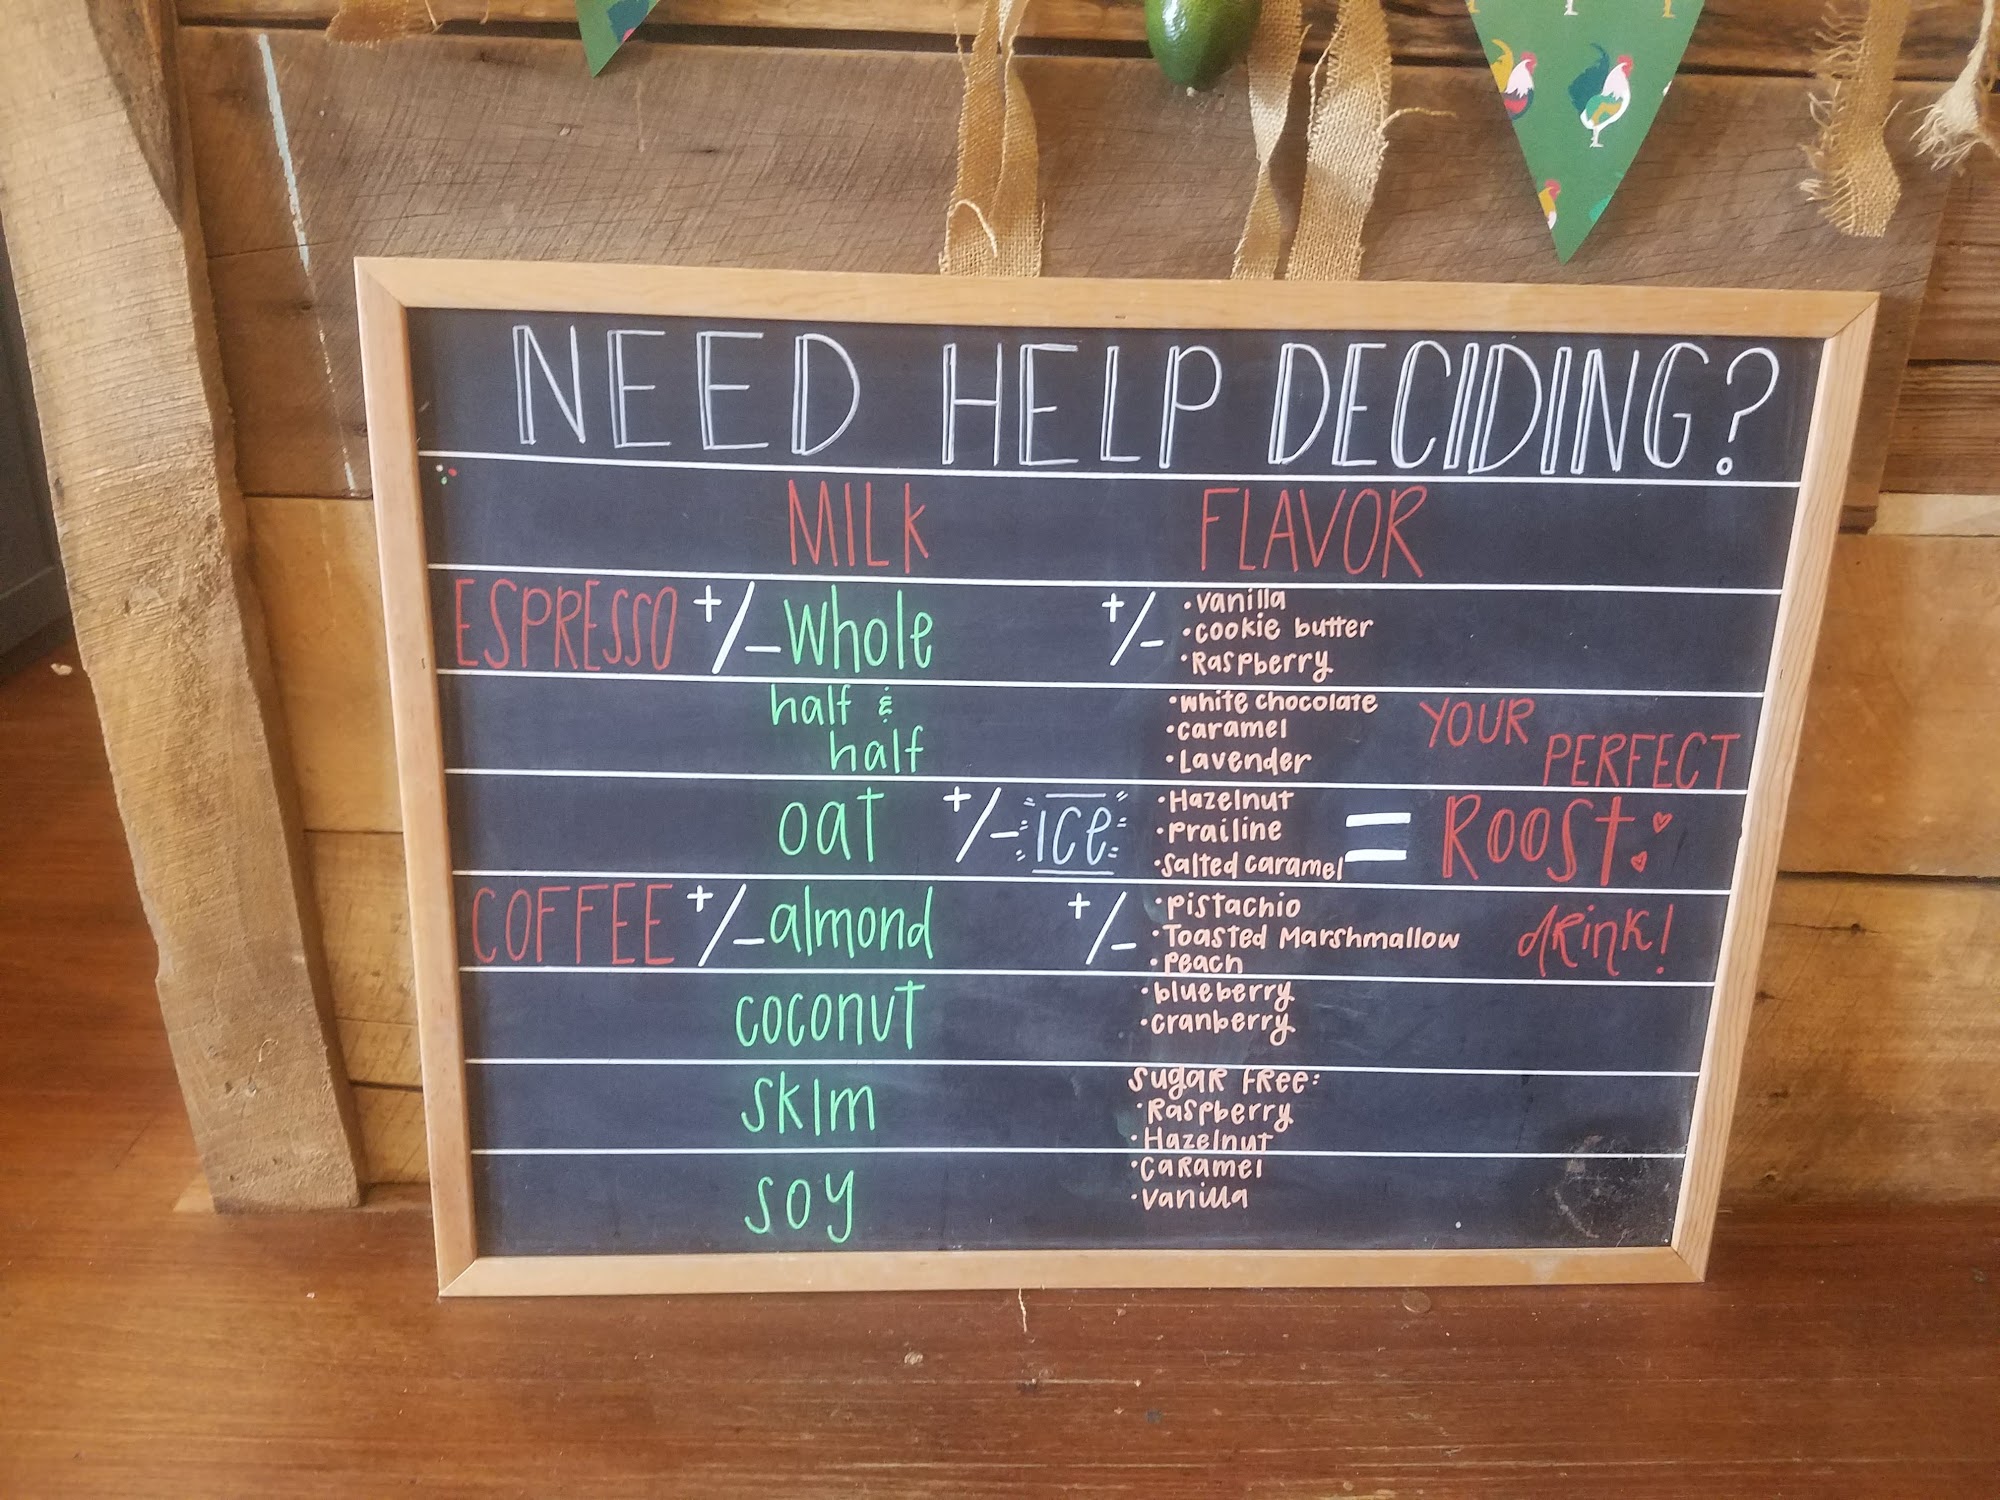 NEED HELP DECIDING?
MILK FLAVOR
ESPRESSO +/- Whole +/- • vanilla
• cookie butter
• Raspberry
half & • white chocolate YOUR
half • caramel PERFECT
• Lavender
oat +/- ice • Hazelnut = ROOST
• prailine
• salted caramel
COFFEE +/- almond +/- • pistachio drink!
• Toasted Marshmallow
• Peach
coconut • blueberry
• cranberry
skim sugar free:
• Raspberry
• Hazelnut
soy • caramel
• vanilla